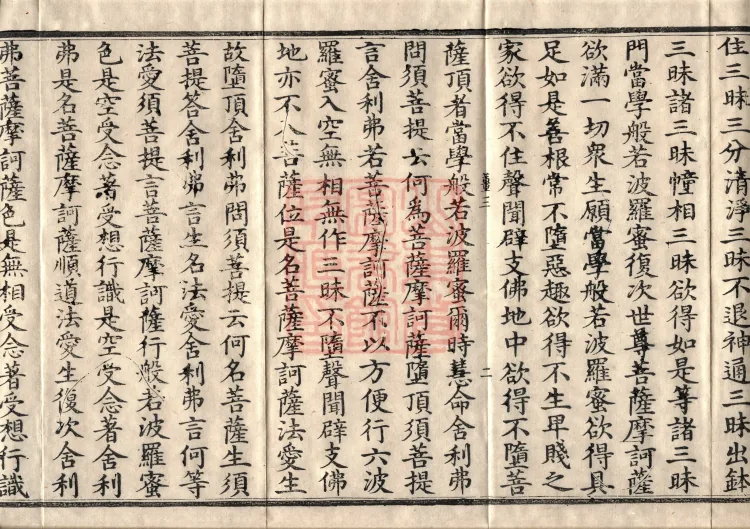 住三昧三分清淨三昧不退神通三昧出鉢
三昧諸三昧幢相三昧欲得如是等諸三昧
門當學般若波羅蜜復次世尊菩薩摩訶薩
欲滿一切衆生願當學般若波羅蜜欲得具
足如是善根常不墮惡趣欲得不生卑賤之
家欲得不住聲聞辟支佛地中欲得不墮菩
二
薩頂者當學般若波羅蜜爾時慧命舍利弗
問須菩提云何爲菩薩摩訶薩墮頂須菩提
言舍利弗若菩薩摩訶薩不以方便行六波
羅蜜入空無相無作三昧不墮聲聞辟支佛
地亦不入菩薩位是名菩薩摩訶薩法愛生
故墮頂舍利弗問須菩提云何名菩薩生須
菩提答舍利弗言生名法愛舍利弗言何等
法愛須菩提言菩薩摩訶薩行般若波羅蜜
色是空受念著受想行識是空受念著舍利
弗是名菩薩摩訶薩順道法愛生復次舍利
弗菩薩摩訶薩色是無相受念著受想行識